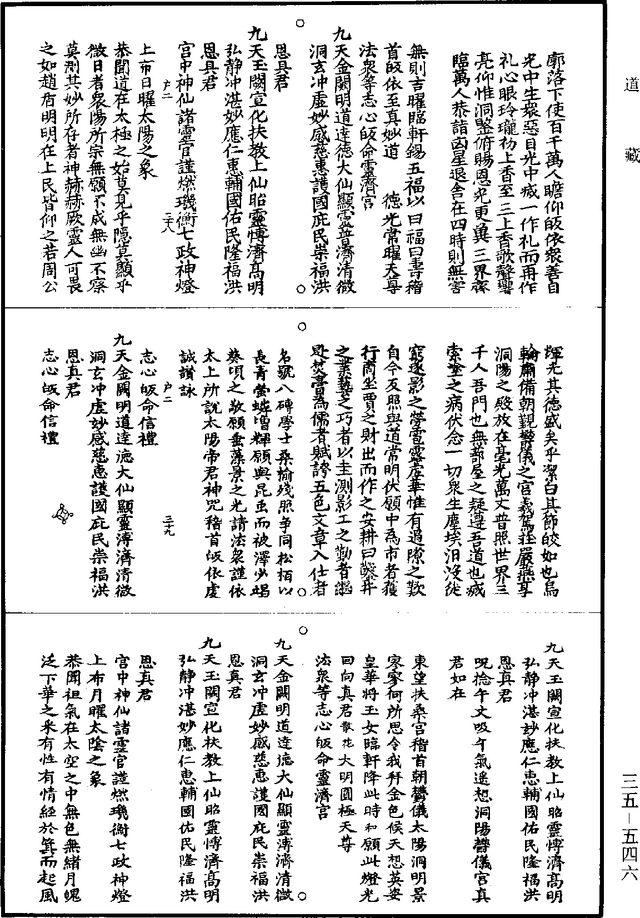 道藏
廓落下使百千萬人瞻仰皈依衆善自
光中生衆惡目光中滅一作礼而再作
礼心眼玲瓏初上香至三上香歌聲響
亮仰惟洞鑒俯賜恩光更冀三界齊
臨萬人恭詣凶星退舍在四時則無害
無則吉曜臨軒錫五福以曰福曰書稽
首皈依至真妙道 德光常曜天尊
法衆等志心皈命靈濟宫
九天金闕明道達德大仙顯靈溥濟清微
洞玄冲虚妙感慈惠護國庇民崇福洪
恩真君
九天玉闕宣化扶教上仙昭靈博濟髙明
弘静冲湛妙應仁惠輔國佑民隆福洪
恩真君
宫中神仙諸靈官謹燃璣衡七政神燈
户二 二十八
上布日曜太陽之象
恭聞道在太極之始莫見乎隱莫顯乎
微日者衆陽所宗無願不成無幽不察
莫測其妙所存者神赫赫厥靈人可畏
之如趙盾明明在上民皆仰之若周公
渾光其德盛矣乎潔白其節皎如也烏
輪肅備朝觀鬱儀之宫羲駕莊嚴燕享
洞陽之殿放在毫光萬丈普照世界三
千人吾門也無蔀屋之疑遵吾道也滅
索塗之病伏念一切衆生塵埃汨没從
窮逐影之勞雷靈虚華惟有過隙之歎
自今反照與道常明伏願中為市者獲
行商坐賈之財出而作之安耕田鑿井
之業藝之巧者以圭測影工之勤者繼
晷焚膏為儒者賦誇五色文章入仕者
名號八磚學士桑榆殘照争同松柏以
長青螢爝増輝願與昆虫而被澤少竭
葵傾之敬願垂藻景之光請法衆謹依
太上所說太陽帝君神呪稽首皈依虔
誠讃詠
户二 二十九
志心皈命信禮
九天金闕明道達德大仙顯靈溥濟清微
洞玄冲虚妙感慈惠護國庇民崇福洪
恩真君
志心皈命信禮
九天玉闕宣化扶教上仙昭靈博濟髙明
弘静冲湛妙應仁惠輔國佑民隆福洪
恩真君
呪捻午文吸午氣遥想洞陽鬱儀宫真
君如在
東望扶桑宫稽首朝鬱儀太陽洞明景
寥寥何所思令我拜金色候天想英姿
皇華將玉女臨軒降此時和願此燈光
回向真君散花大明圓極天尊
法衆等志心皈命靈濟宫
九天金闕明道達德大仙顯靈溥濟清微
洞玄冲虚妙感慈惠護國庇民崇福洪
恩真君
九天玉闕宣化扶教上仙昭靈博濟髙明
弘静冲湛妙應仁惠輔國佑民隆福洪
恩真君
宫中神仙諸靈官謹燃璣衡七政神燈
上布月曜太陰之象
恭聞祖氣在太空之中無色無緒月魄
泛下華之釆有性有情經於箕而起風
三五－五四六